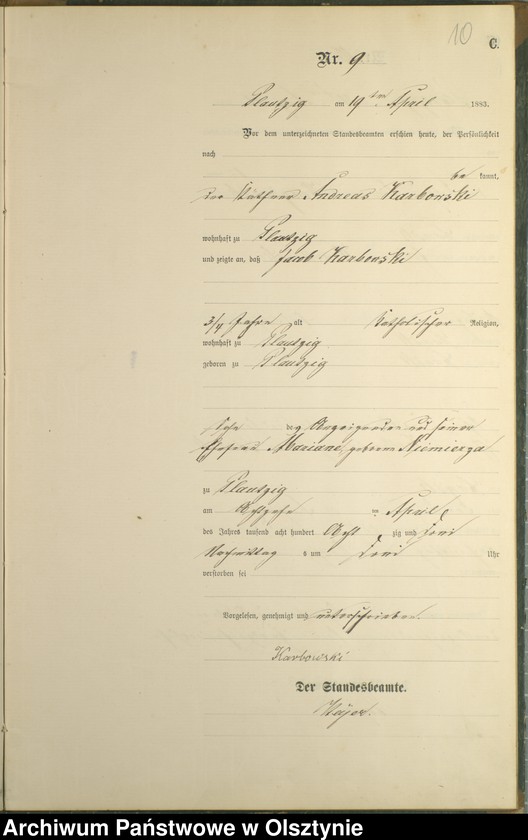 10
C.
Nr. 9
Plautzig am 19ten April 1883.
Vor dem unterzeichneten Standesbeamten erschien heute, der Persönlichkeit
nach
be kannt,
der Käthner Andreas Karbowski
wohnhaft zu Plautzig
und zeigte an, daß Jacob Karbowski
3/4 Jahre alt Katholischer Religion,
wohnhaft zu Plautzig
geboren zu Plautzig
Sohn des Anzeigenden und seiner
Ehefrau Mariane, geborene Niemierza
zu Plautzig
am Achtzehn ten April
des Jahres tausend acht hundert Acht zig und drei
Nachmittag s um drei Uhr
verstorben sei
Vorgelesen, genehmigt und unterschrieben.
Karbowski
Der Standesbeamte.
Archiwum Państwowe w Olsztynie